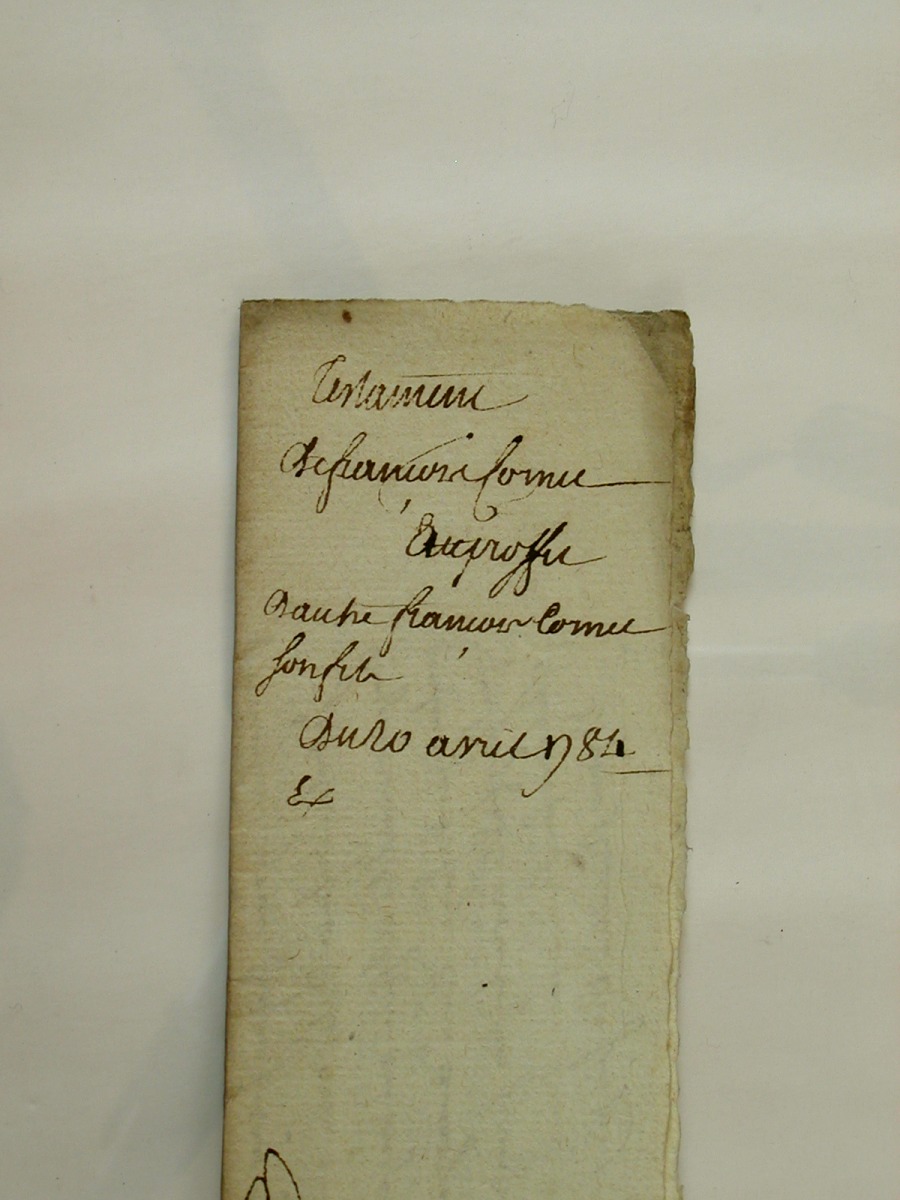 Testament
De francois Cornu
Au proffit
D'autre francois Cornu
son fils
Du 20 avril 1784